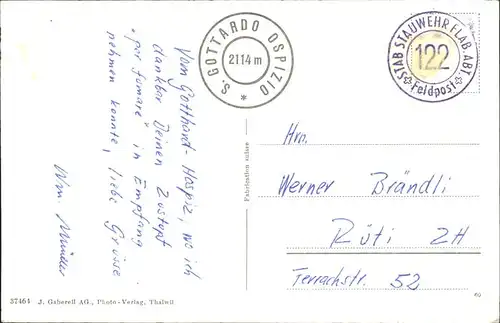 Vom Gotthard-Hospiz, wo ich
dankbar Deinen Zustupf
"per fumare" in Empfang
nehmen konnte, liebe Grüsse
Wm. Müller
S. GOTTARDO OSPIZIO
2114 m
*
STAB STAUWEHR FLAB. ABT.
122
Feldpost
Hrn.
Werner Brändli
Rüti ZH
Terrachstr. 52
Fabrication suisse
37464 J. Gaberell AG., Photo-Verlag, Thalwil